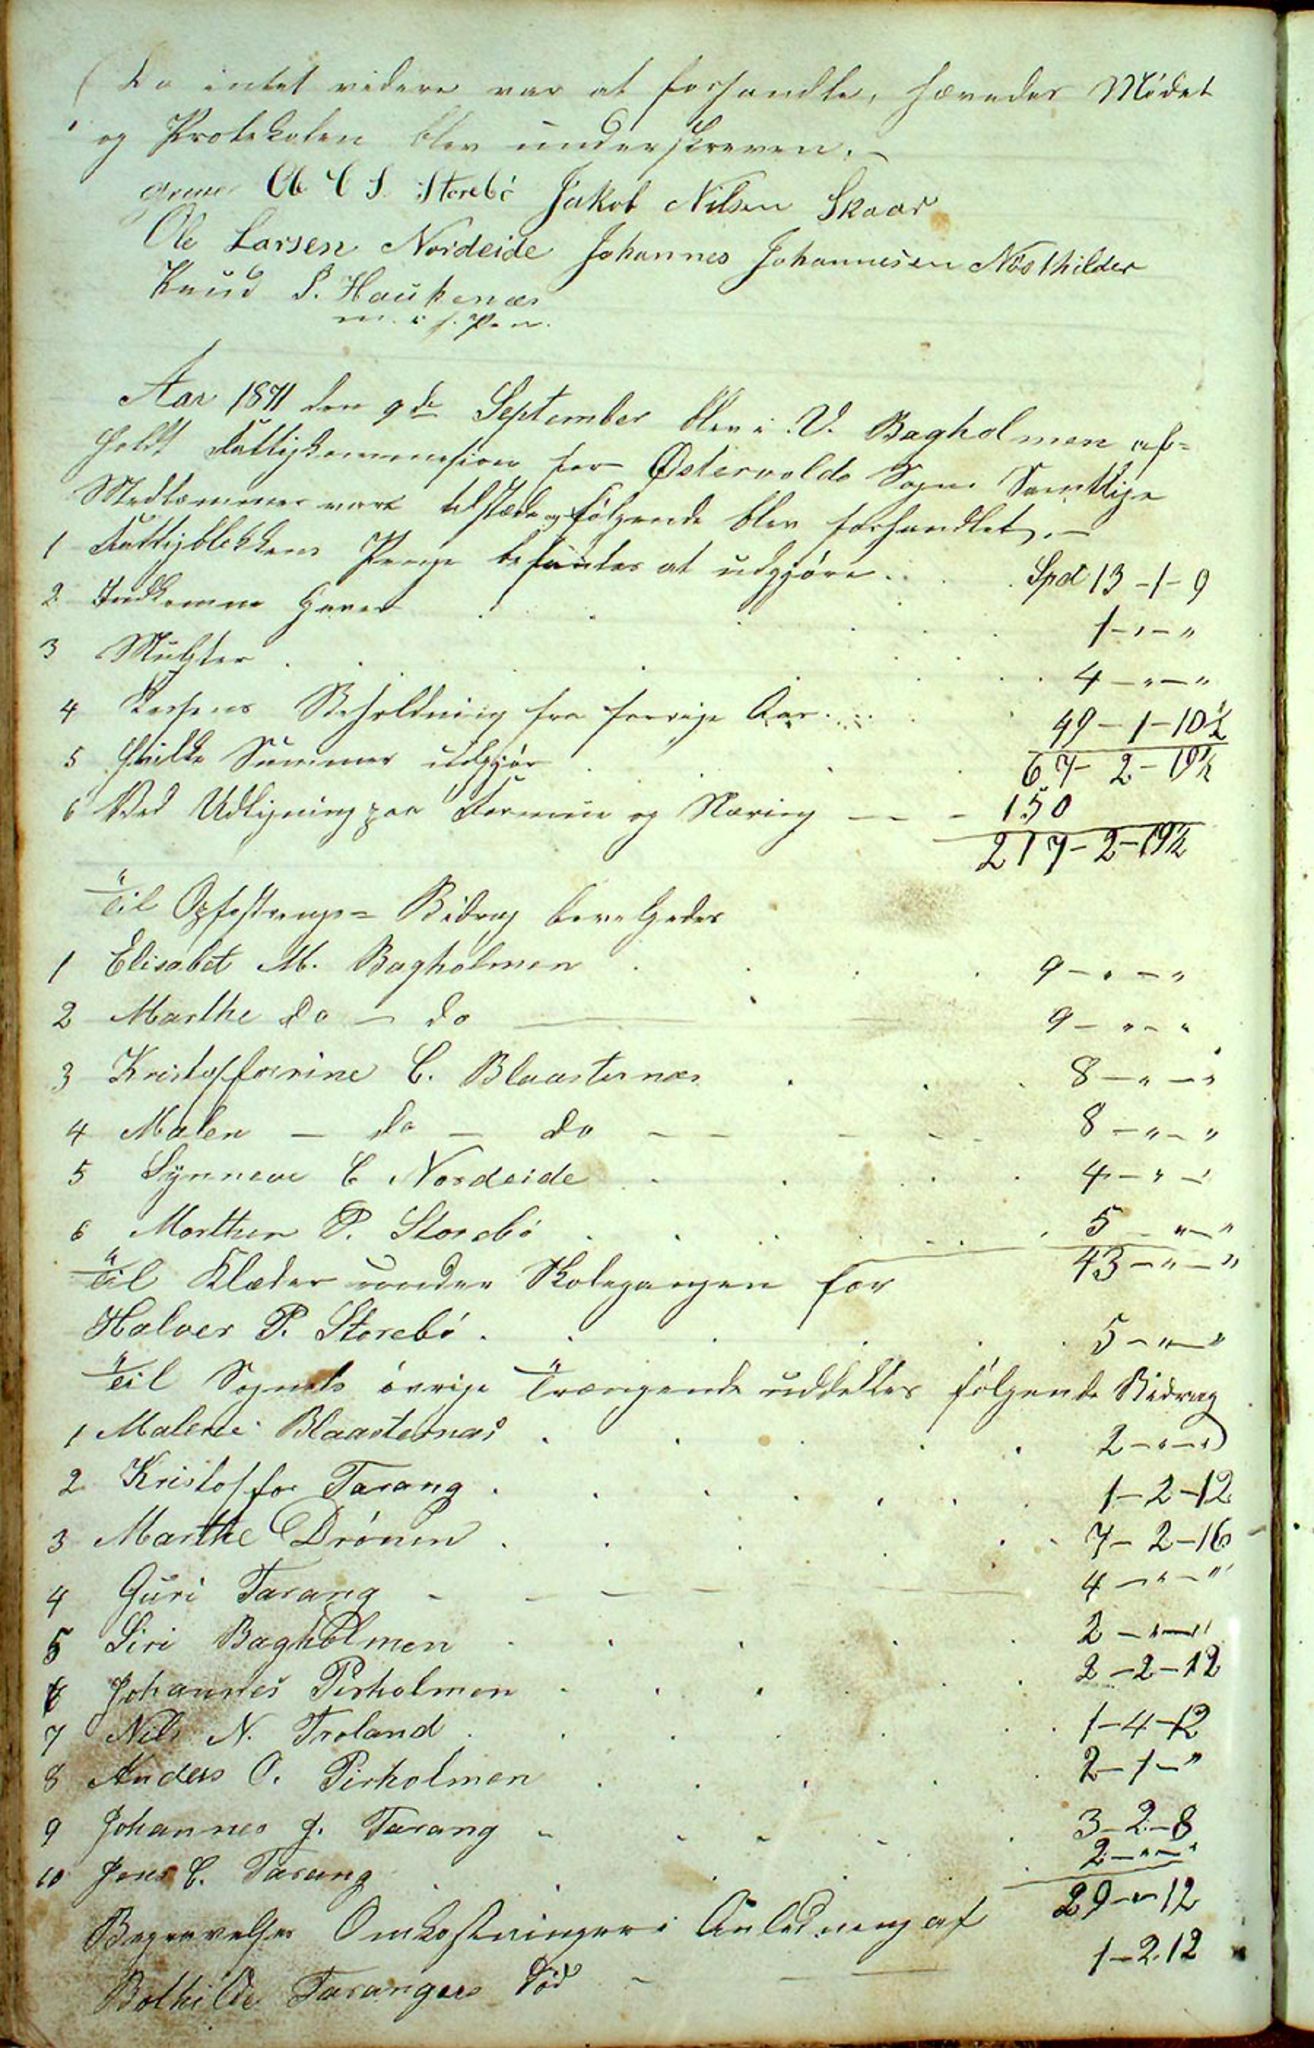 Da intet videre var at forhandle, hævedes Mødet
og Protokolen blev underskreven. –
Ole C S. Storebø Jakob Nilsen Skaar
Ole Larsen Nordeide Johannes Johannesen Nøsthilder
Knud S. Haukenæs
m. i. f. Pen.
Aar 1871 den 9de September blev i V. Bagholmen af=
holdt Fattigkommission for Østervolds Sogn Samtlige
Medlemmer vare tilstæde og følgende blev forhandlet. –
1 Fattigblokkens Penge befandtes at udgjøre . . . Spd 13 – 1 – 9
2 Indkomne Gaver . . . 1 – " – "
3 Mulkter . . . 4 – " – "
4 Kassens Beholdning fra forrige Aar . . . 49 – 1 – 10½
5 Hvilke Summer udgjør . . . 67 – 2 – 19½
6 Ved Udligning paa Formue og Næring — — – 150
217 – 2 – 19½
Til Opfostrings= Bidrag bevelgedes
1 Elisabet M. Bagholmen . . . 9 – " – "
2 Marthe do – do — 9 – " – "
3 Kristofforine C. Blaasternæs . . . 8 – " – "
4 Malen – do – do – – – – 8 – " – "
5 Synneve C Nordeide . . . 4 – " – "
6 Morthen P. Storebø . . . 5 " – "
43 – " – "
Til Klæder under Skolegangen for
Halver P. Storebø . . . 5 – " – "
Til Sognets øvrige Trængende uddeltes følgende Bidrag
1 Malene Blaasternæs . . . 2 – " – "
2 Kristoffor Tarang . . . 1 – 2 – 12
3 Marthe Drønen . . . 7 – 2 – 16
4 Guri Tarang – – – – 4 – " – "
5 Siri Bagholmen . . . 2 – " – "
6 Johannes Pirholmen . . . 2 – 2 – 12
7 Nils N. Troland . . . 1 – 4 – 12
8 Anders O. Pirholmen . . . 2 – 1 – "
9 Johannes J. Tarang . . . 3 – 2 – 8
10 Jens C. Tarang . . . 2 – " – "
29 – " – 12
Begravelses Omkostninger i Anledning af
Bothilde Tarangers Død – – — 1 – 2 12